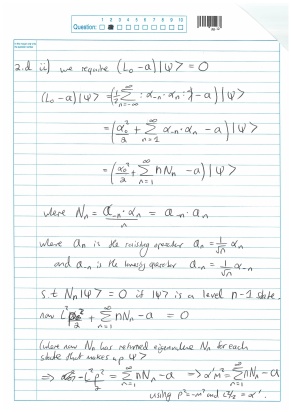 Question: 1 2 3 4 5 6 7 8 9 10
2.d ii) we require (L₀ - a)|ψ> = 0
(L₀-a)|ψ> = (½ ∑_{n=-∞}^{∞} :α₋ₙ·αₙ: - a)|ψ>
= (α₀²/2 + ∑_{n=1}^{∞} α₋ₙ·αₙ - a)|ψ>
= (α₀²/2 + ∑_{n=1}^{∞} nNₙ - a)|ψ>
where Nₙ = α₋ₙ·αₙ/n = a₋ₙ·aₙ
where aₙ is the raising operator aₙ = 1/√n αₙ
and a₋ₙ is the lowering operator a₋ₙ = 1/√n α₋ₙ
s.t Nₙ|ψ> = 0 if |ψ> is a level n-1 state.
now L²p²/2 + ∑_{n=1}^{∞} nNₙ - a = 0
(where now Nₙ has returned eigenvalue Nₙ for each
state that makes up ψ>
⇒ -L²p²/2 = ∑_{n=1}^{∞} nNₙ - a ⇒ α'M² = ∑_{n=1}^{∞} nNₙ - a
using p²=-m² and L²/2 = α'.